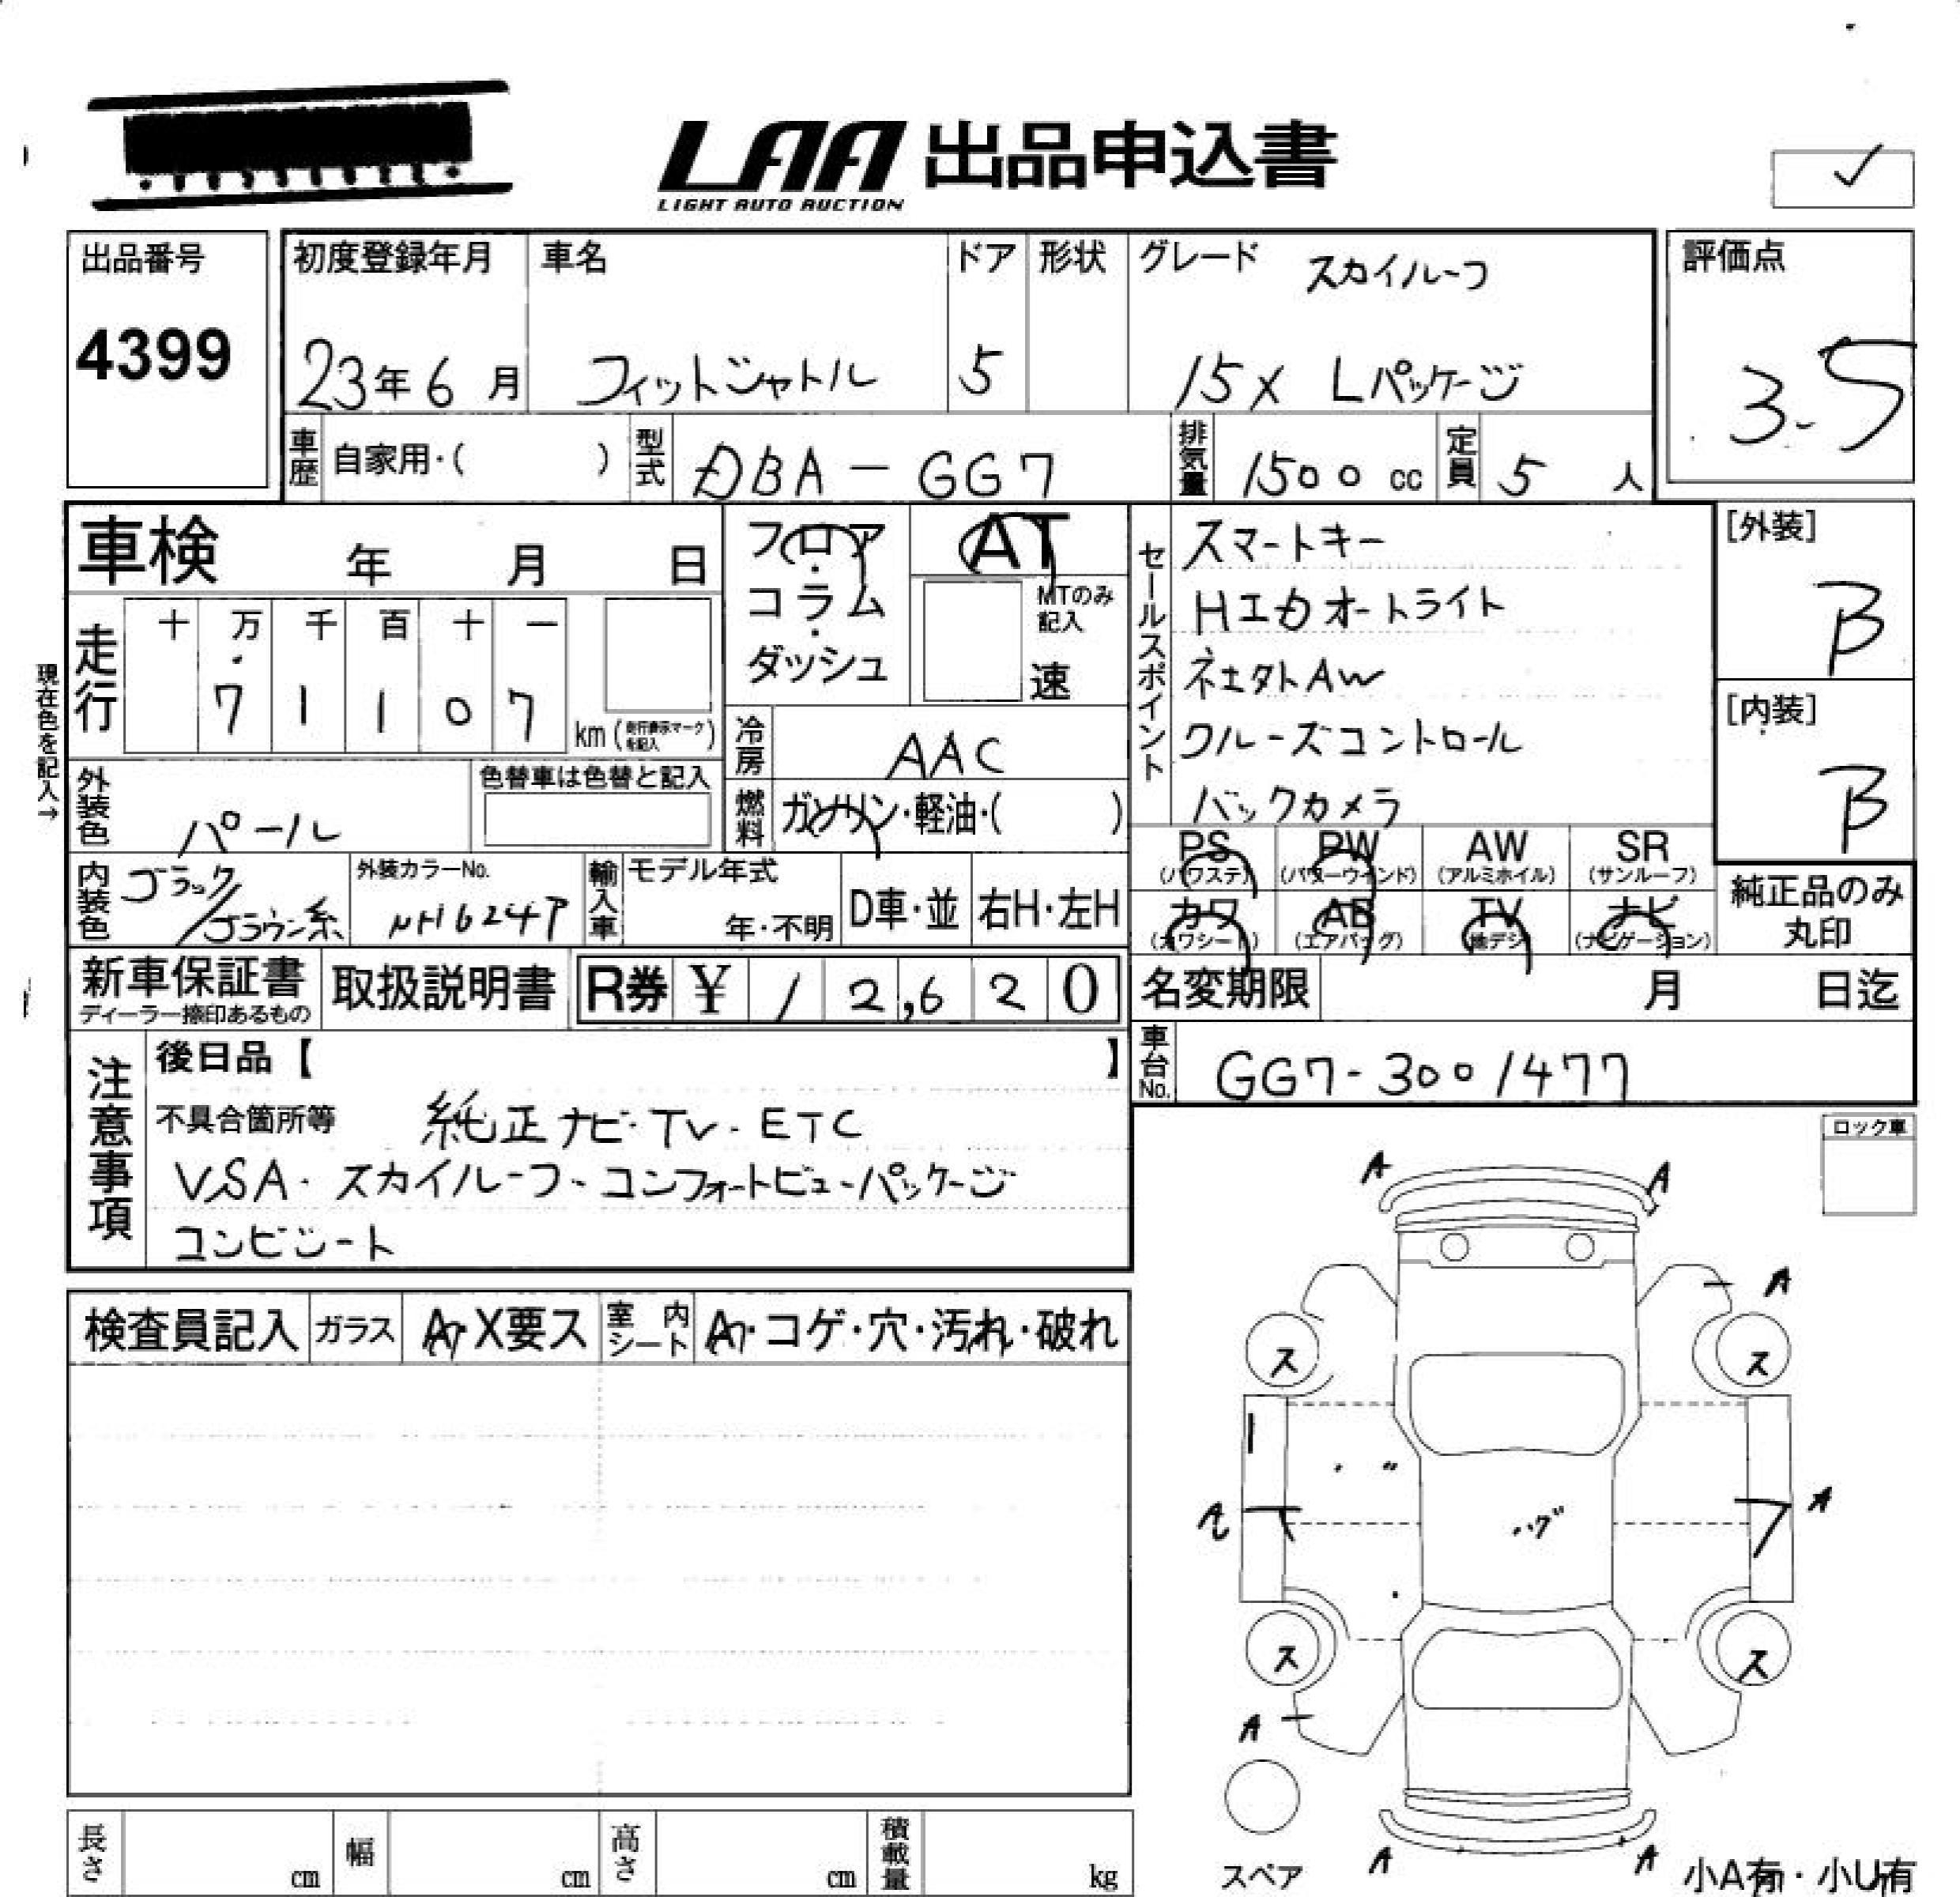 LAA 出品申込書
LIGHT AUTO AUCTION
✓
出品番号
4399
初度登録年月
23年6月
車名
フィットシャトル
ドア
5
形状
グレード スカイルーフ
15X Lパッケージ
評価点
3.5
車歴 自家用・( )
型式 DBA-GG7
排気量 1500 cc
定員 5 人
車検 年 月 日
フロア・コラム・ダッシュ
AT
MTのみ記入
速
セールスポイント
スマートキー
HIDオートライト
社外AW
クルーズコントロール
バックカメラ
[外装]
B
[内装]
B
現在色を記入→
走行
十 万 千 百 十 一
7 1 1 0 7
km(走行表示マークを記入)
冷房 AAC
外装色 パール
色替車は色替と記入
燃料 ガソリン・軽油・( )
内装色 ブラック/ブラウン系
外装カラーNo.
NH624P
輸入車
モデル年式
年・不明
D車・並
右H・左H
PS (パワステ)
PW (パワーウインド)
AW (アルミホイル)
SR (サンルーフ)
カワ (カワシート)
AB (エアバッグ)
TV (地デジ)
ナビ (ナビゲーション)
純正品のみ丸印
新車保証書
ディーラー捺印あるもの
取扱説明書
R券 ¥ 12,620
名変期限 月 日迄
車台No. GG7-3001477
注意事項
後日品【 】
不具合箇所等 純正ナビ・TV・ETC
VSA・スカイルーフ・コンフォートビューパッケージ
コンビシート
ロック車
検査員記入
ガラス A・X要ス
室内シート A・コゲ・穴・汚れ・破れ
A A
A
ス ス
A
ハゲ
ス ス
A
スペア
A A
小A有・小U有
長さ cm
幅 cm
高さ cm
積載量 kg